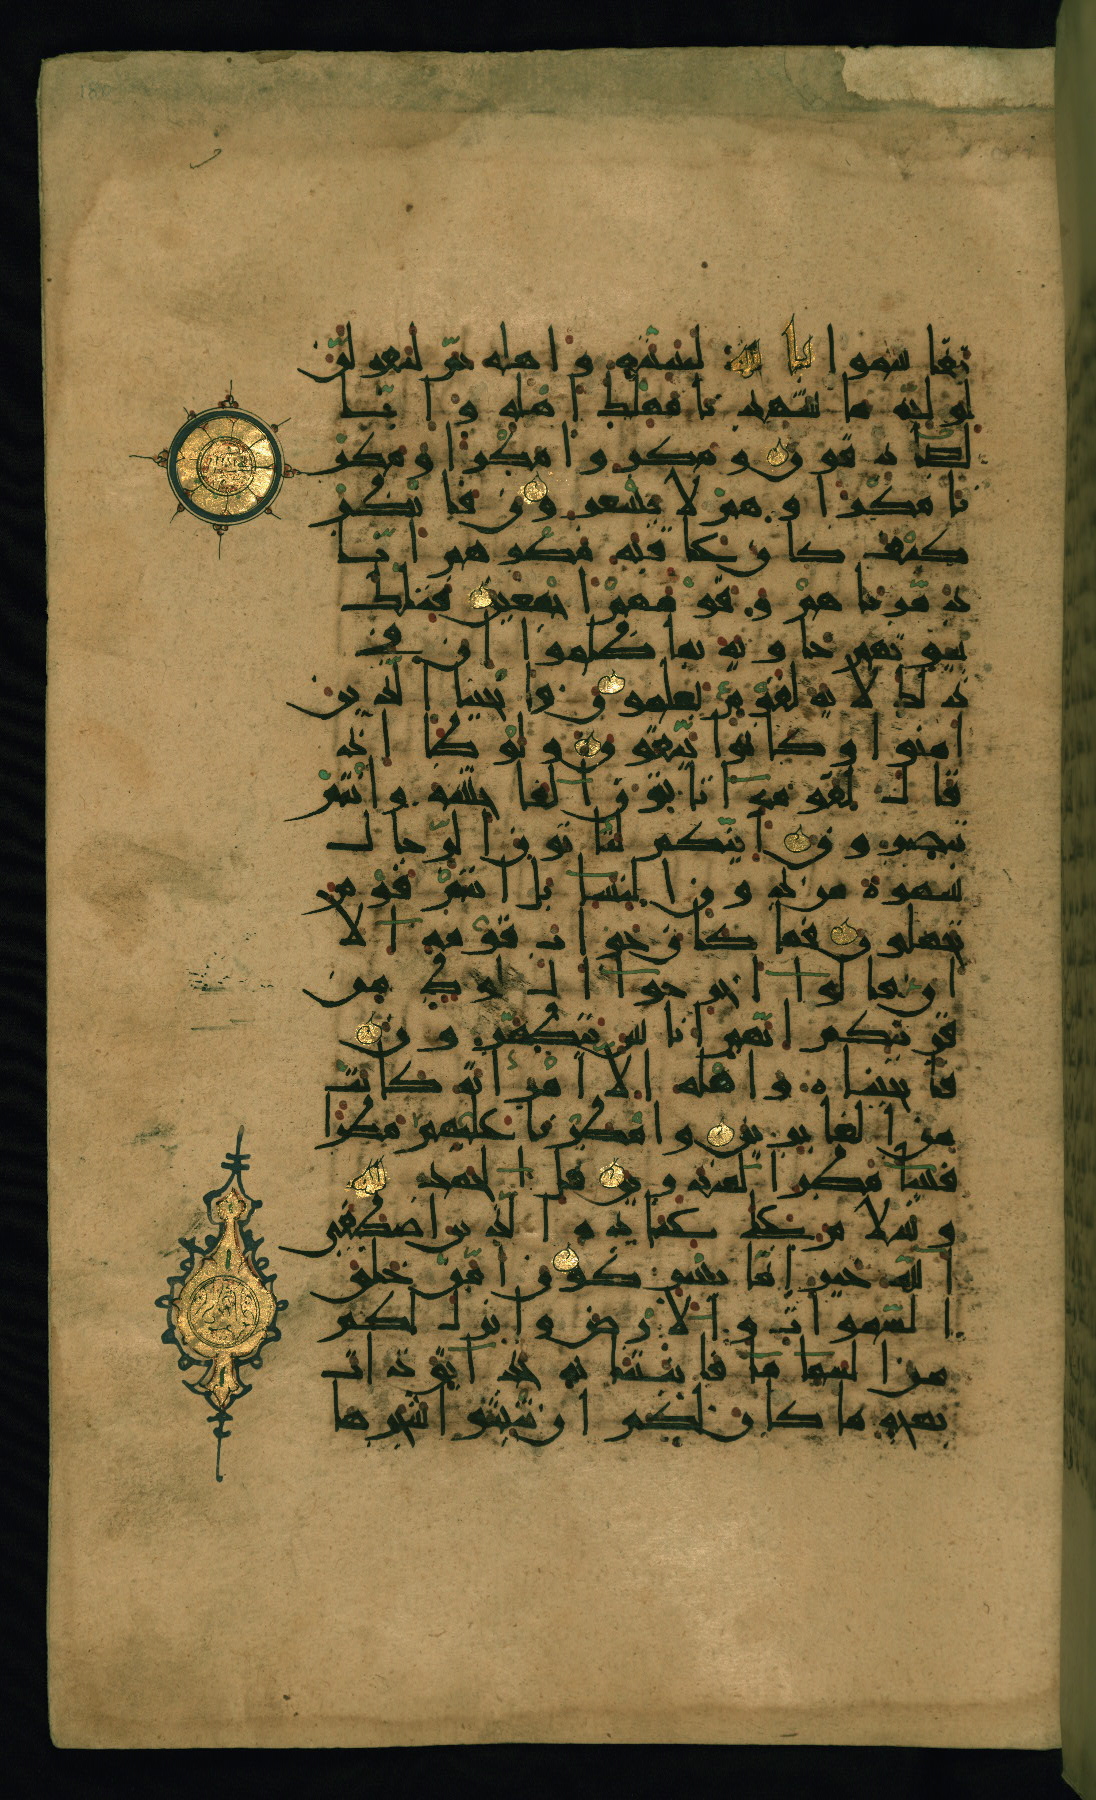 تقاسموا بالله لنبيتنه واهله ثم لنقولن
لوليه ما شهدنا مهلك اهله وانا
لصادقون ومكروا مكرا ومكر
نا مكرا وهم لا يشعرون فانظر
كيف كان عاقبة مكرهم انا
دمرناهم وقومهم اجمعين فتلك
بيوتهم خاوية بما ظلموا ان في
ذلك لاية لقوم يعلمون وانجينا الذين
امنوا وكانوا يتقون ولوطا اذ
قال لقومه اتاتون الفاحشة وانتم
تبصرون ائنكم لتاتون الرجال
شهوة من دون النسا بل انتم قوم
تجهلون فما كان جواب قومه الا
ان قالوا اخرجوا ال لوط من
قريتكم انهم اناس يتطهرون
فانجيناه واهله الا امراته كانت
من الغابرين وامطرنا عليهم مطرا
فسا مطر المنذرين قل الحمد لله
وسلام على عباده الذين اصطفى
الله خير اما يشركون امن خلق
السموات والارض وانزل لكم
من السما ما فانبتنا به حدائق ذات
بهجة ما كان لكم ان تنبتوا شجرها